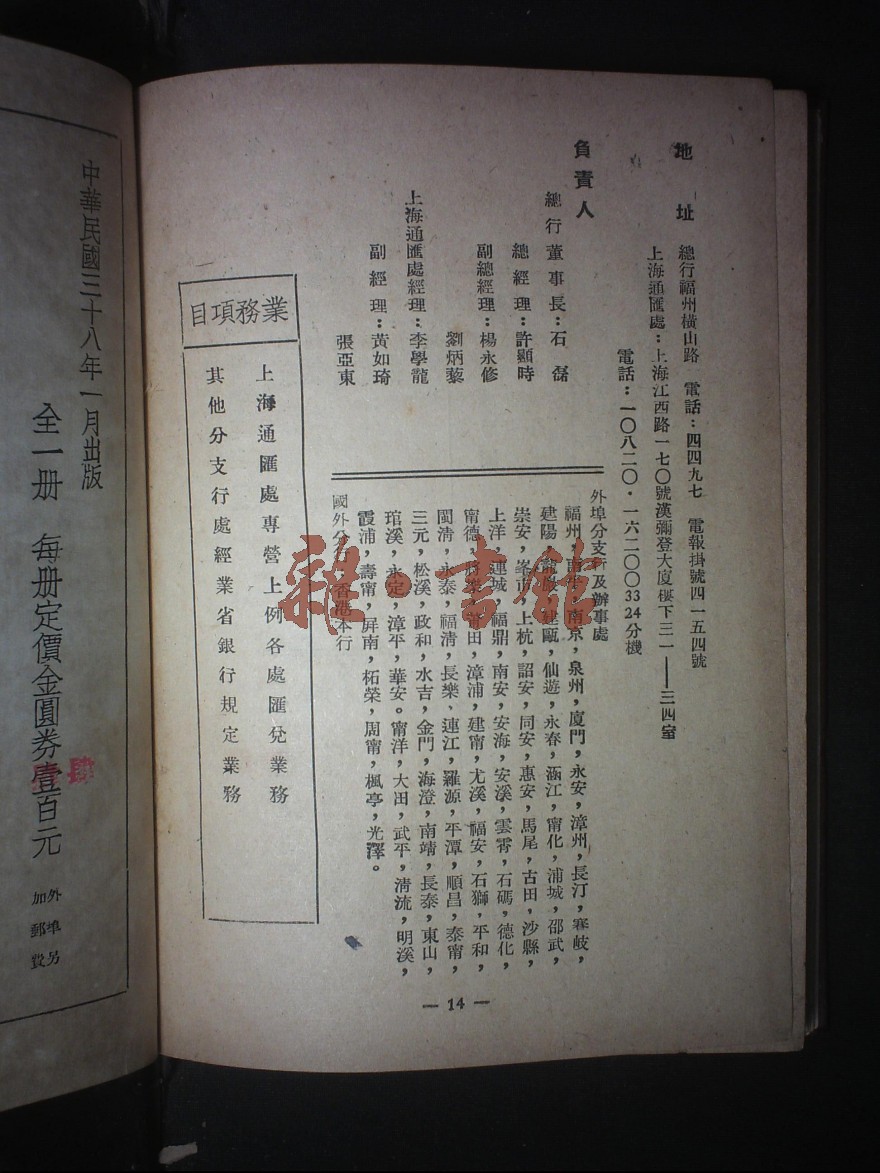 地址
總行福州橫山路 電話：四四九七 電報掛號四一五四號
上海通匯處：上海江西路一七〇號漢彌登大廈樓下三一——三四室
電話：一〇八二〇·一六二〇〇 33 24分機
負責人
總行董事長：石磊
總經理：許顯時
副總經理：楊永修
劉炳藜
上海通匯處經理：李學龍
副經理：黃如琦
張亞東
外埠分支行及辦事處
福州，南平，南京，泉州，廈門，永安，漳州，長汀，賽岐，
建陽，龍巖，建甌，仙遊，永春，涵江，甯化，浦城，邵武，
崇安，峯市，上杭，詔安，同安，惠安，馬尾，古田，沙縣，
上洋，連城，福鼎，南安，安海，安溪，雲霄，石碼，德化，
甯德，將樂，莆田，漳浦，建甯，尤溪，福安，石獅，平和，
閩清，永泰，福清，長樂、連江，羅源，平潭，順昌，泰甯，
三元，松溪，政和，水吉，金門，海澄，南靖，長泰，東山，
琯溪，永定，漳平，華安。甯洋，大田，武平，清流，明溪，
霞浦，壽甯，屏南，柘榮，周甯，楓亭，光澤。
國外分行：香港本行
業務項目
上海通匯處專營上例各處匯兌業務
其他分支行處經業省銀行規定業務
— 14 —
中華民國三十八年一月出版
全一册 每册定價金圓券壹百元
外埠另
加郵費
雜·書館